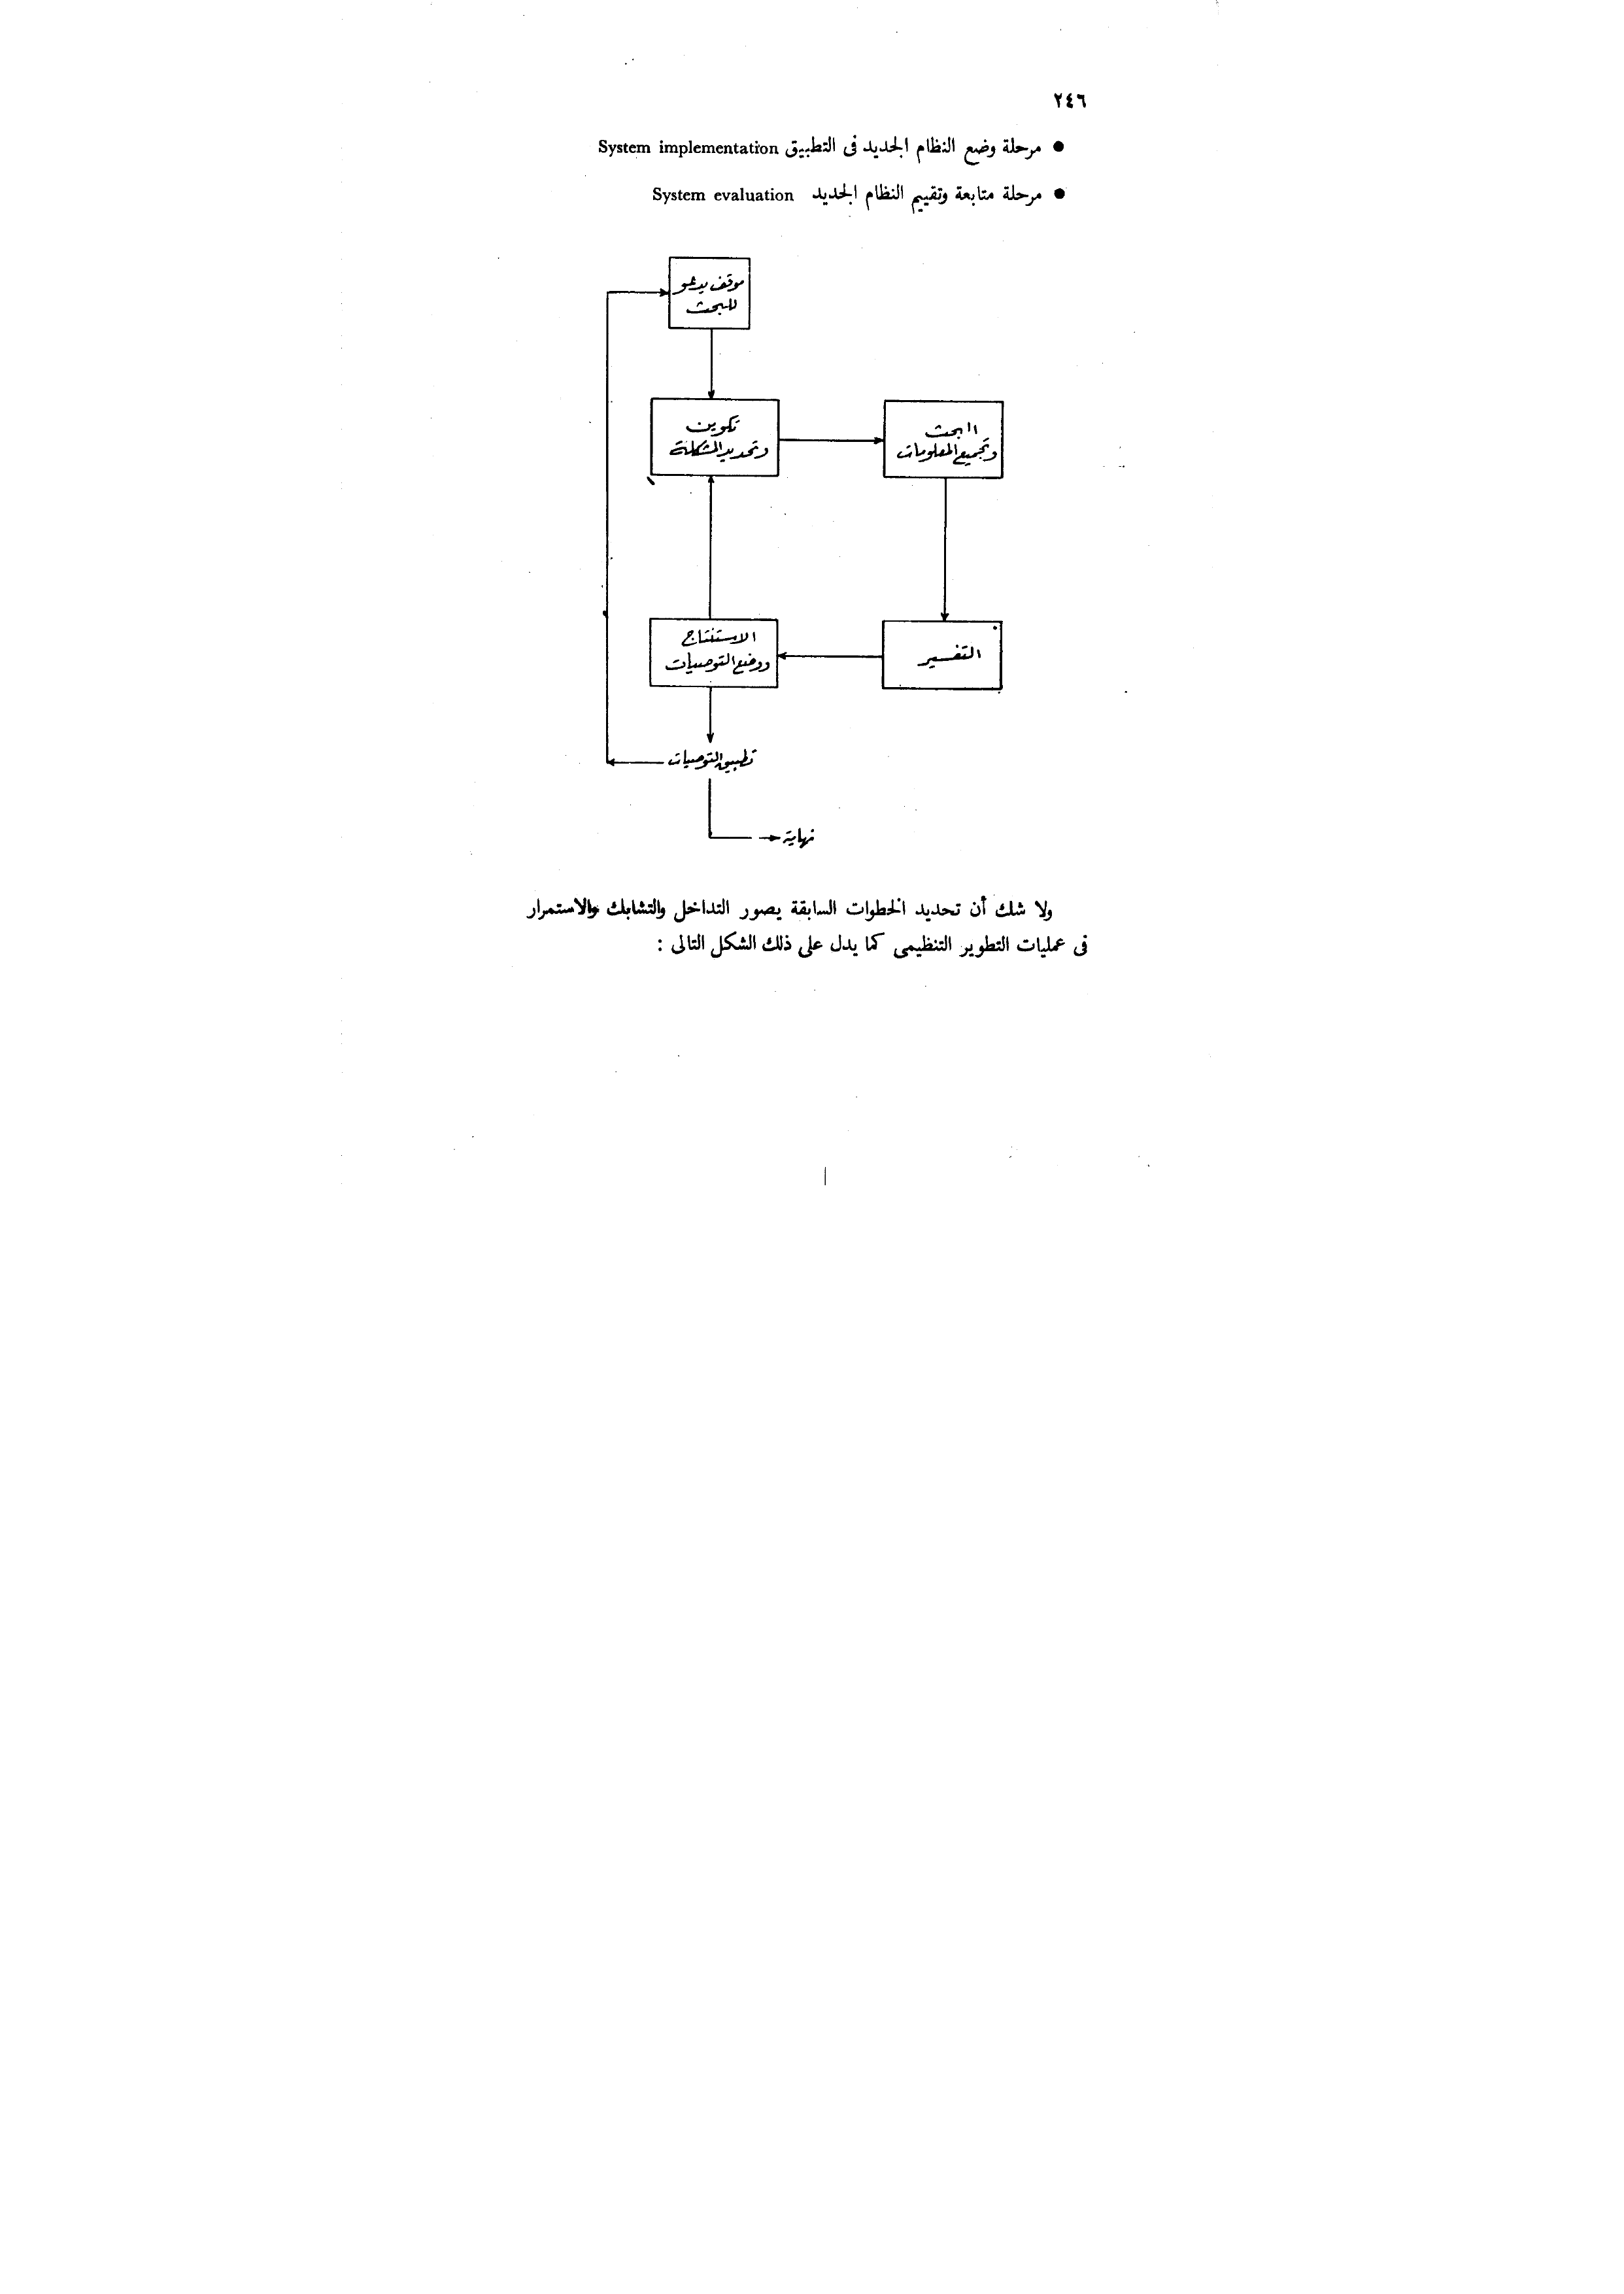 ٢٤٦
● مرحلة وضع النظام الجديد فى التطبيق System implementation
● مرحلة متابعة وتقييم النظام الجديد System evaluation
موقف يدعو
للبحث
تكوين
وتحديد المشكلة
البحث
وتجميع المعلومات
الاستنتاج
ووضع التوصيات
التفسير
تطبيق التوصيات
نهاية
ولا شك أن تحديد الخطوات السابقة يصور التداخل والتشابك والاستمرار
فى عمليات التطوير التنظيمى كما يدل على ذلك الشكل التالى :